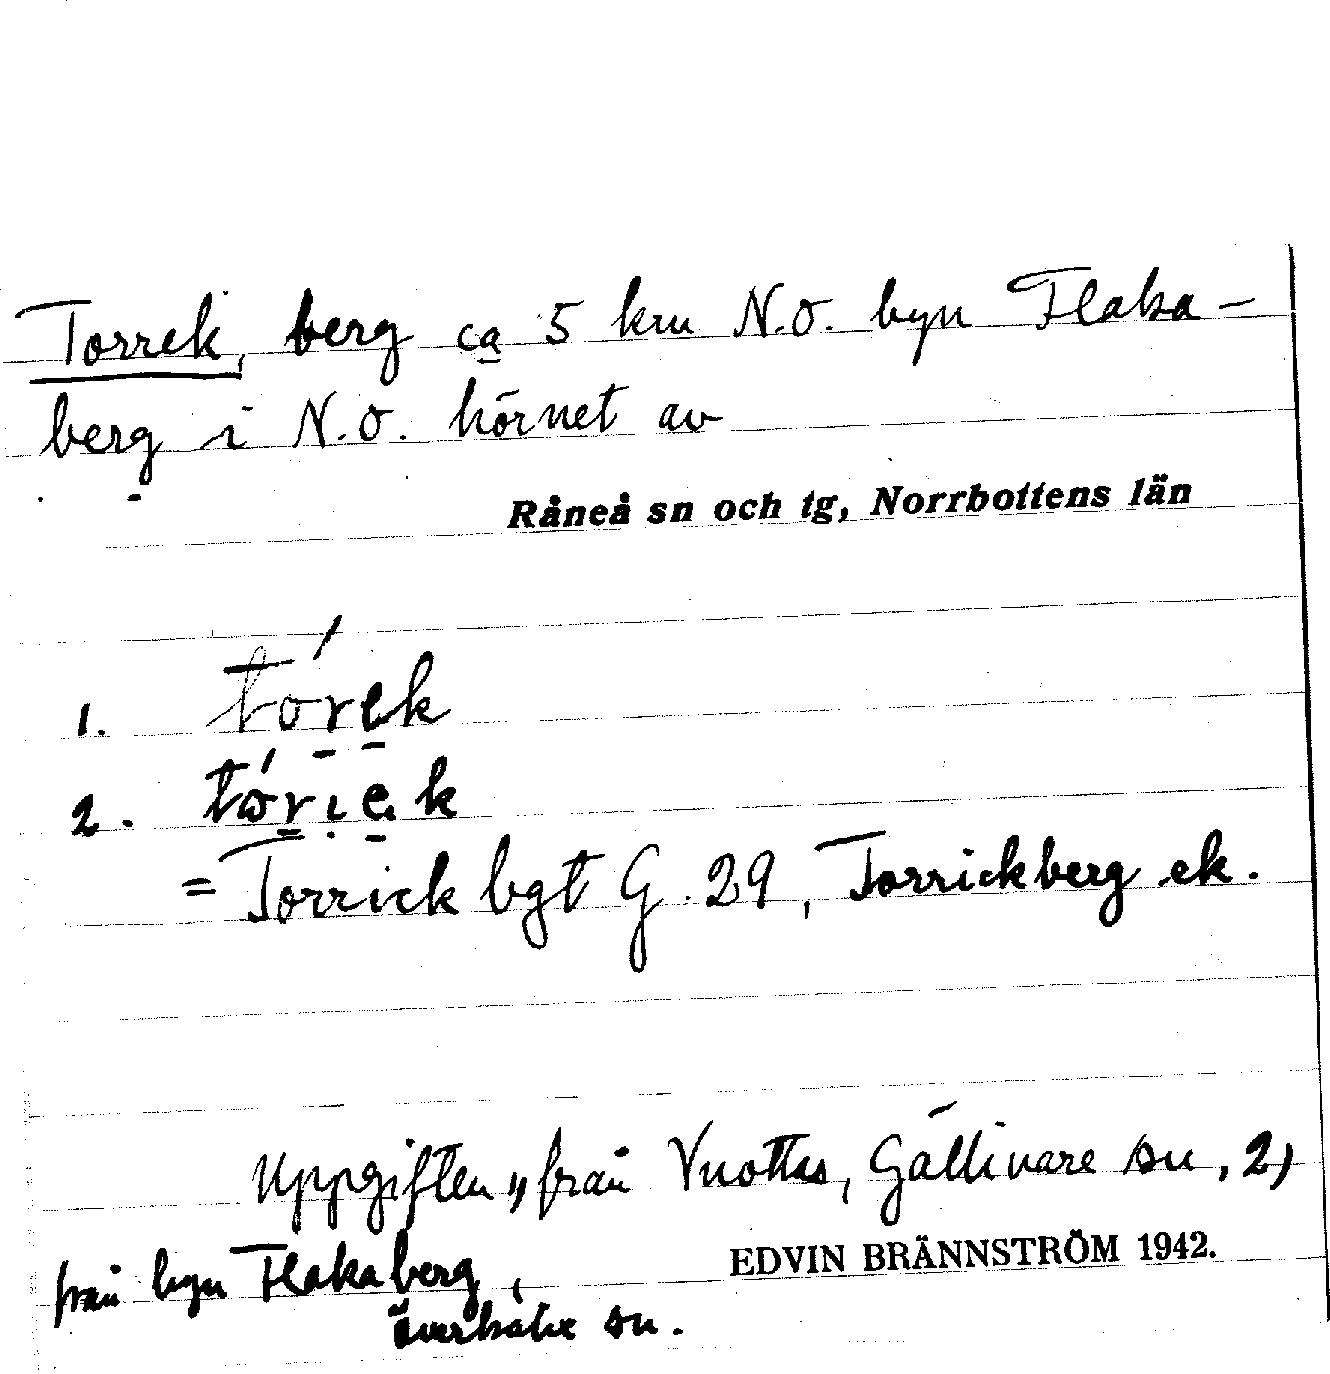 Torrek, berg ca 5 km N.O. byn Flaka-
berg i N.O. hörnet av
Råneå sn och tg, Norrbottens län
1. tórek
2. tóriek
= Torrick bgt G. 29, Torrickberg ek.
Uppgiften 1) från Vuottas, Gällivare sn, 2)
från byn Flakaberg,
EDVIN BRÄNNSTRÖM 1942.
överkalix sn.